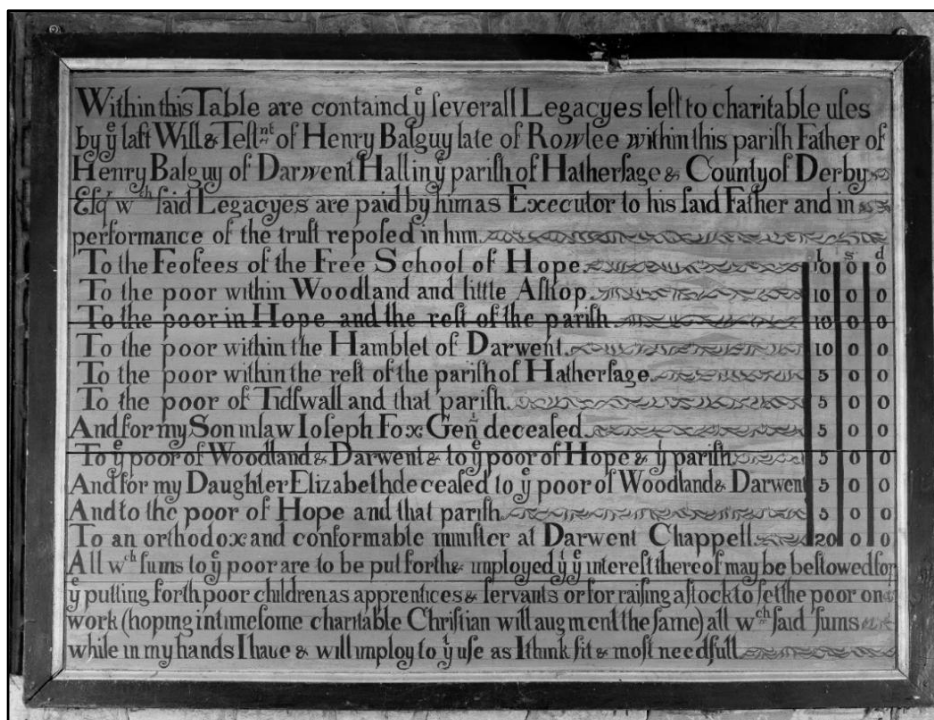 Within this Table are containd yͤ ſeverall Legacyes left to charitable uſes
by yͤ laſt Will & Teſtⁿᵗ of Henry Balguy late of Rowlee within this pariſh Father of
Henry Balguy of Darwent Hall in yͤ pariſh of Hatherſage & County of Derby
Eſqʳ wᶜʰ ſaid Legacyes are paid by him as Executor to his ſaid Father and in
performance of the truſt repoſed in him.
l s d
To the Feofees of the Free School of Hope 10 0 0
To the poor within Woodland and little Aſhop 10 0 0
To the poor in Hope and the reſt of the pariſh 10 0 0
To the poor within the Hamblet of Darwent 10 0 0
To the poor within the reſt of the pariſh of Hatherſage 5 0 0
To the poor of Tidſwall and that pariſh 5 0 0
And for my Son in law Ioſeph Fox Genᵗ deceaſed 5 0 0
To yͤ poor of Woodland & Darwent & to yͤ poor of Hope & yᵗ pariſh 5 0 0
And for my Daughter Elizabeth deceaſed to yͤ poor of Woodland & Darwent 5 0 0
And to the poor of Hope and that pariſh 5 0 0
To an orthodox and conformable miniſter at Darwent Chappell 20 0 0
All wᶜʰ ſums to yͤ poor are to be put forth & imployed yᵗ yͤ intereſt thereof may be beſtowed for
yͤ putting forth poor children as apprentices & ſervants or for raiſing a ſtock to ſet the poor on
work (hoping in time ſome charitable Chriſtian will augment the ſame) all wᶜʰ ſaid ſums
while in my hands I haue & will imploy to yᵗ uſe as I think fit & moſt needfull